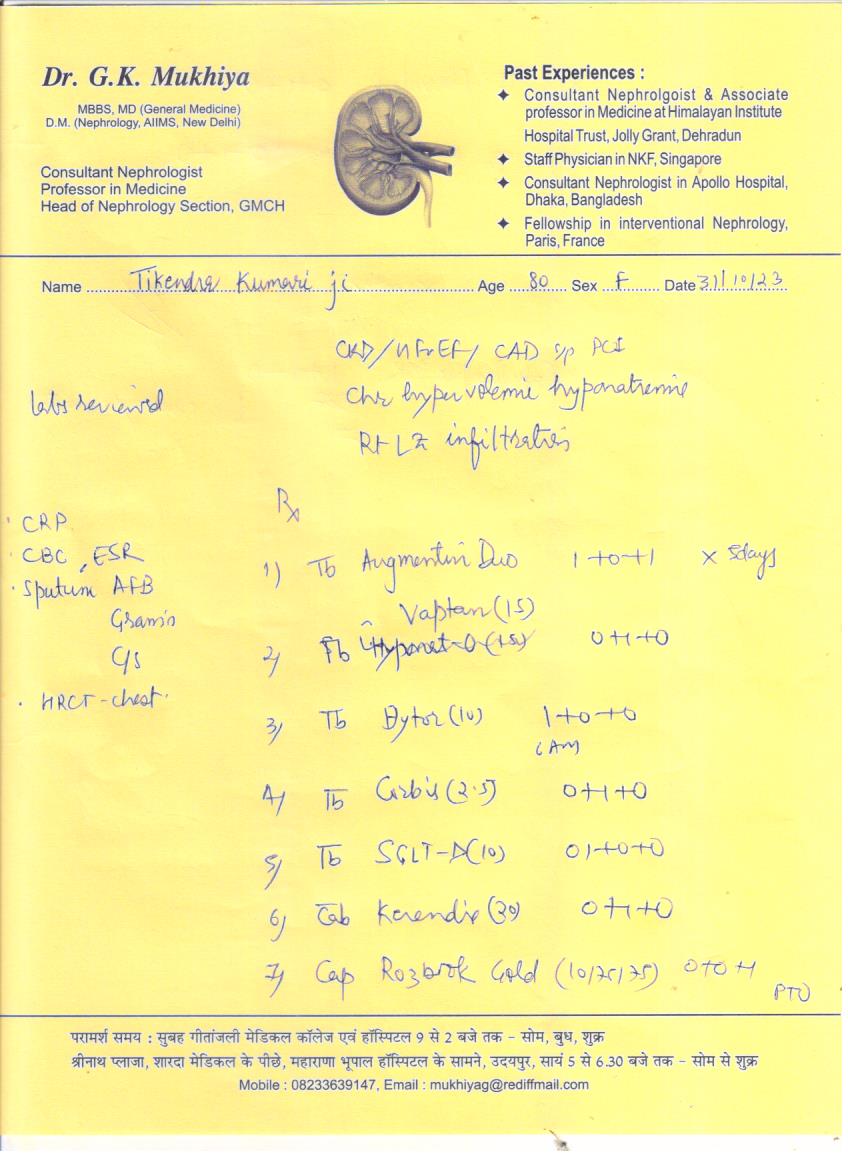 Dr. G.K. Mukhiya
MBBS, MD (General Medicine)
D.M. (Nephrology, AIIMS, New Delhi)
Consultant Nephrologist
Professor in Medicine
Head of Nephrology Section, GMCH
Past Experiences :
Consultant Nephrolgoist & Associate
professor in Medicine at Himalayan Institute
Hospital Trust, Jolly Grant, Dehradun
Staff Physician in NKF, Singapore
Consultant Nephrologist in Apollo Hospital,
Dhaka, Bangladesh
Fellowship in interventional Nephrology,
Paris, France
Name Tikendra Kumari ji Age 80 Sex F Date 31/10/23
CKD/HFrEF/ CAD s/p PCI
Chr hypervolemic hyponatremia
Rt LZ infiltration
labs reviewed
CRP
CBC, ESR
Sputum AFB
Gram's
C/s
HRCT-chest
Rx
1) Tb Augmentin Duo 1+0+1 x 5days
Vaptan (15)
2) Tb 0+1+0
3) Tb Dytor (10) 1+0+0
6 AM
4) Tb (2.5) 0+1+0
5) Tb SGLT-D(10) 01+0+0
6) Tab Kerendia 0+1+0
7) Cap Gold (10/75/75) 0+0+1
PTO
परामर्श समय : सुबह गीतांजली मेडिकल कॉलेज एवं हॉस्पिटल 9 से 2 बजे तक – सोम, बुध, शुक्र
श्रीनाथ प्लाजा, शारदा मेडिकल के पीछे, महाराणा भूपाल हॉस्पिटल के सामने, उदयपुर, सायं 5 से 6.30 बजे तक – सोम से शुक्र
Mobile : 08233639147, Email : mukhiyag@rediffmail.com